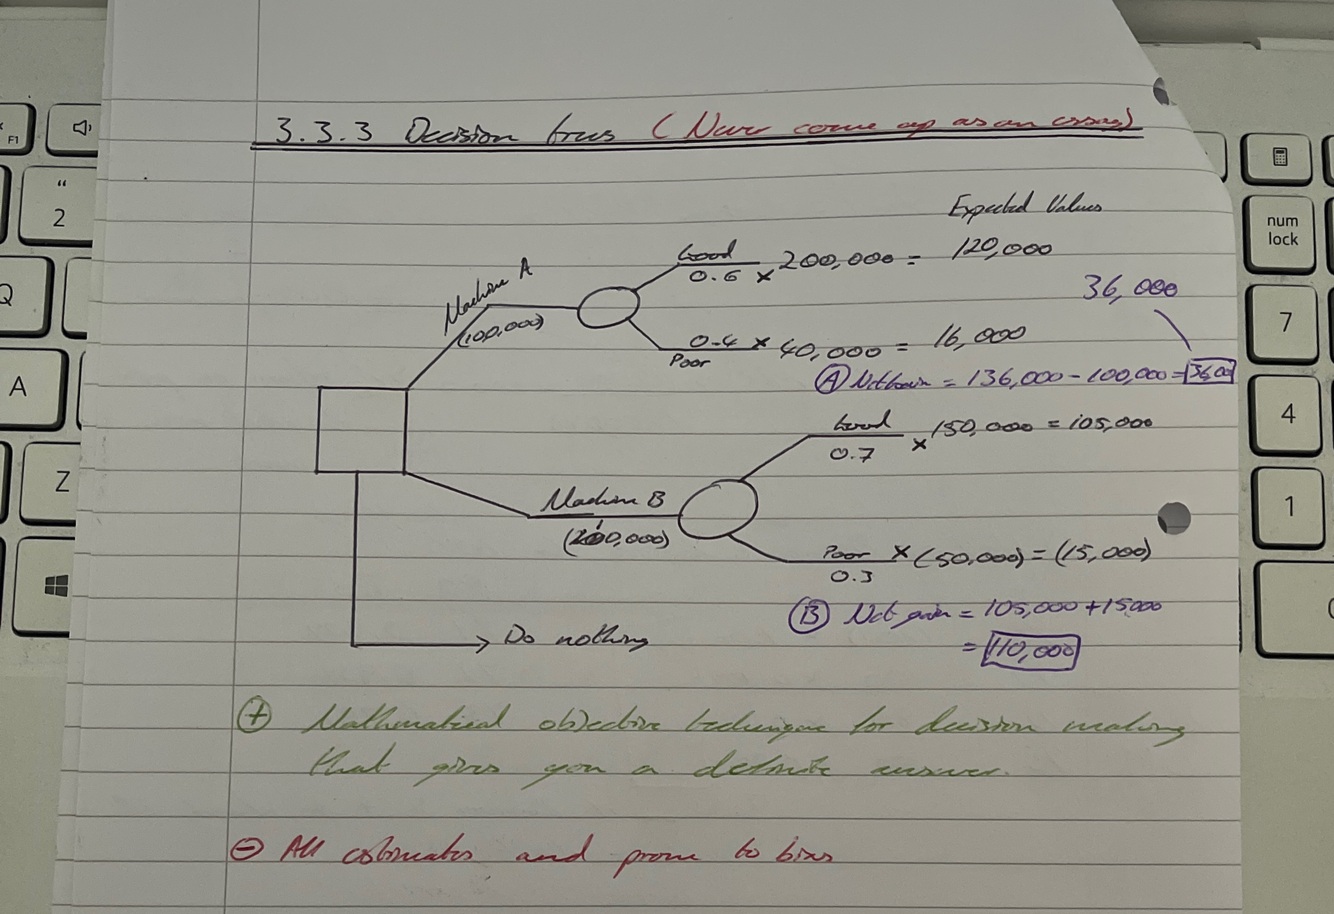 3.3.3 Decision trees (Never come up as an essay)
Expected Values
Machine A
(100,000)
Good
0.6 × 200,000 = 120,000
36,000
0.4 × 40,000 = 16,000
Poor
(A) Net Gain = 136,000 - 100,000 = 36,00
Good
0.7 × 150,000 = 105,000
Machine B
00,000)
Poor × (50,000) = (15,000)
0.3
(B) Net gain = 105,000 + 15000
= 110,000
Do nothing
+ Mathematical objective technique for decision making
that gives you a definite answer.
- All estimates and prone to bias
F1
“
2
Q
A
Z
num
lock
7
4
1